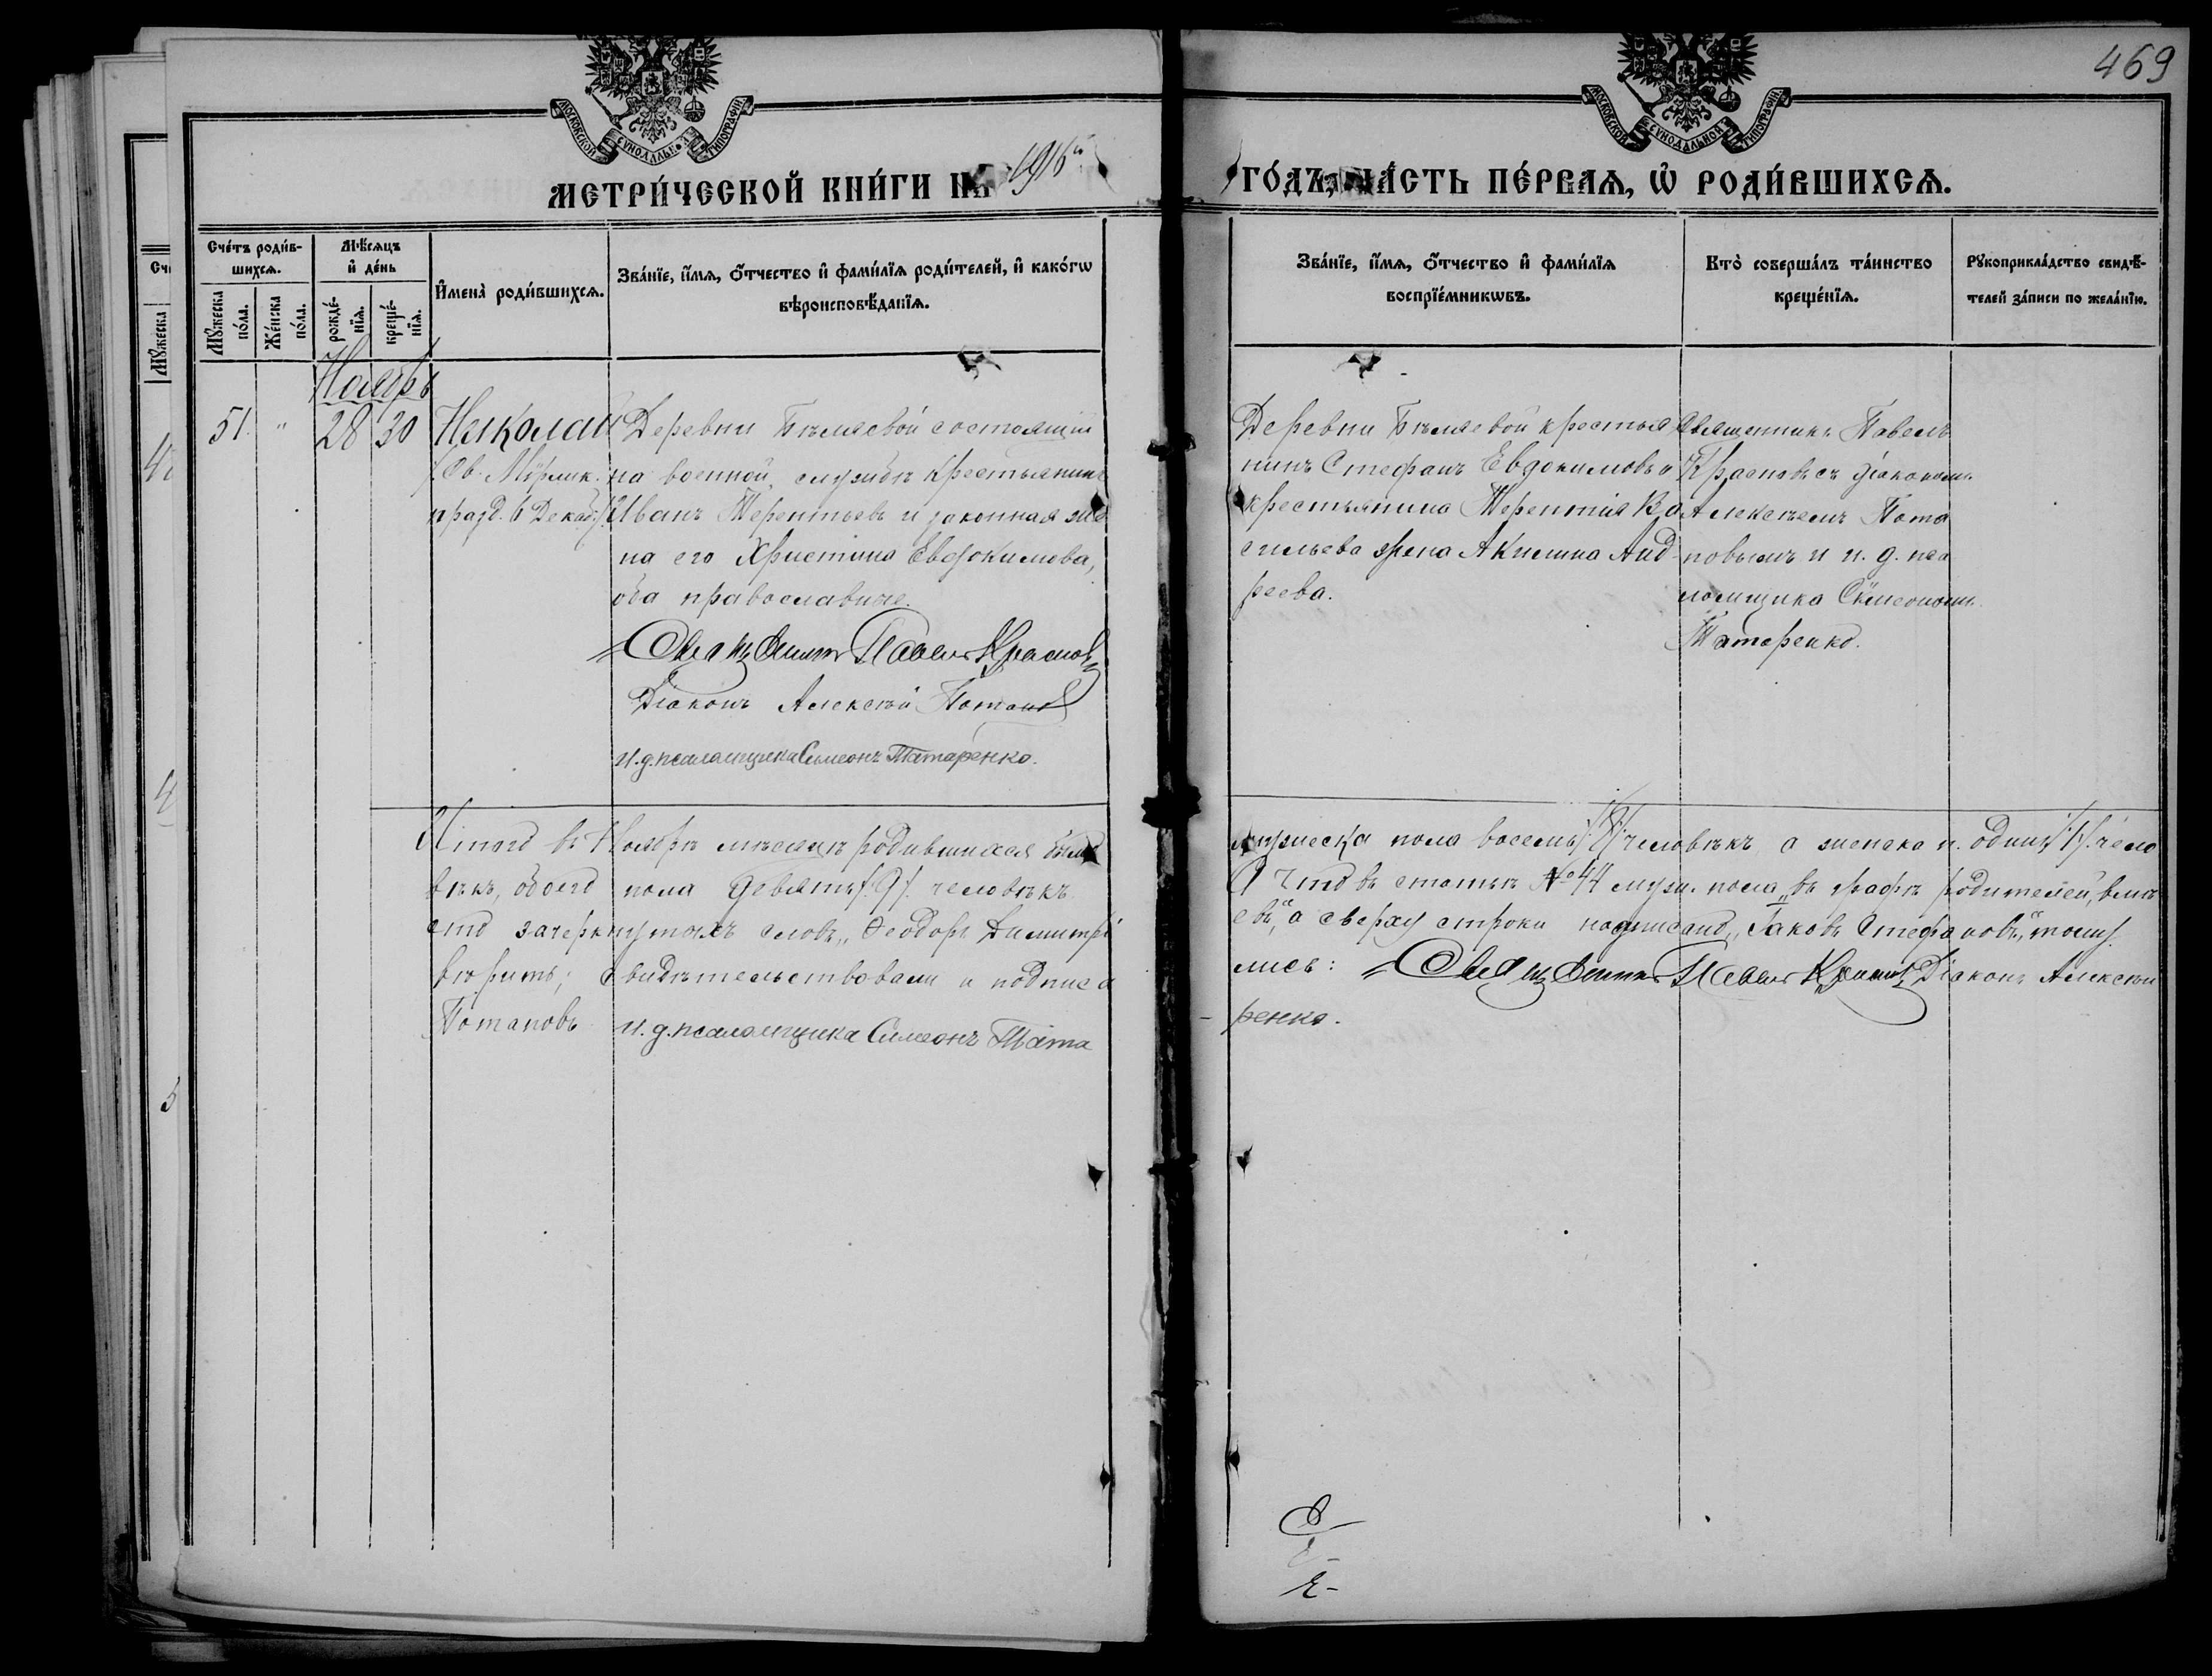 469
МОСКОВСКОЙ СѴНОДАЛЬНОЙ ТИПОГРАФІИ
МОСКОВСКОЙ СѴНОДАЛЬНОЙ ТИПОГРАФІИ
МЕТРИ́ЧЕСКОЙ КНИ́ГИ НА 1916й
ГО́ДЪ, ЧА́СТЬ ПЕ́РВАЯ, Ѡ РОДИ́ВШИХСЯ.
Сче́тъ роди́в-
шихся.
Мꙋ́жеска по́ла.
Же́нска по́ла.
Мѣ́сяцъ
и҆ де́нь
рожде́-
нїя.
креще́-
нїя.
И҆мена̀ роди́вшихся.
Зва́нїе, и҆́мя, ѻ҆́тчество и҆ фами́лїя роди́телей, и҆ како́гѡ
вѣроисповѣ́данїя.
Зва́нїе, и҆́мя, ѻ҆́тчество и҆ фами́лїя
воспрїе́мникѡвъ.
Кто̀ соверша́лъ та́инство
креще́нїя.
Рꙋкоприкла́дство свидѣ́-
телей за́писи по жела́нїю.
Ноябрь
51 " 28 30 Николай
(Св. Мѵрлик.
празд. 6 Декаб.)
Деревни Бѣляевой состоящiй
на военной службѣ крестьянинъ
Иванъ Терентьевъ и законная же
на его Христина Евдокимова,
оба православные.
Священникъ Павелъ Красновъ
Дiаконъ Алексѣй Потаповъ
И.д. псаломщика Симеонъ Татаренко.
Деревни Бѣляевой крестья
нинъ Стефанъ Евдокимовъ и
крестьянина Терентiя Ва
сильева жена Акилина Анд
реева.
Священникъ Павелъ
Красновъ съ дiакономъ
Алексѣемъ Пота
повымъ и и. д. пса
ломщика Сѵмеономъ
Татаренко.
Итого въ Ноябрѣ мѣсяцѣ родившихся было мужеска пола восемь /:8:/ человѣкъ, а женска п. одинъ /:1:/ чело
вѣкъ, обоего пола девять /:9:/ человѣкъ. А что въ статьѣ №44 муж. пола „въ графѣ родителей", вмѣ
сто зачеркнутыхъ словъ „Ѳеодоръ Димитрі евъ", а сверху строки надписано „Іаковъ Стефановъ", тому
вѣрить; свидѣтельствовали и подписа лись: Священникъ Павелъ Красновъ Дiаконъ Алексѣй
Потаповъ И.д. псаломщика Симеонъ Тата ренко.